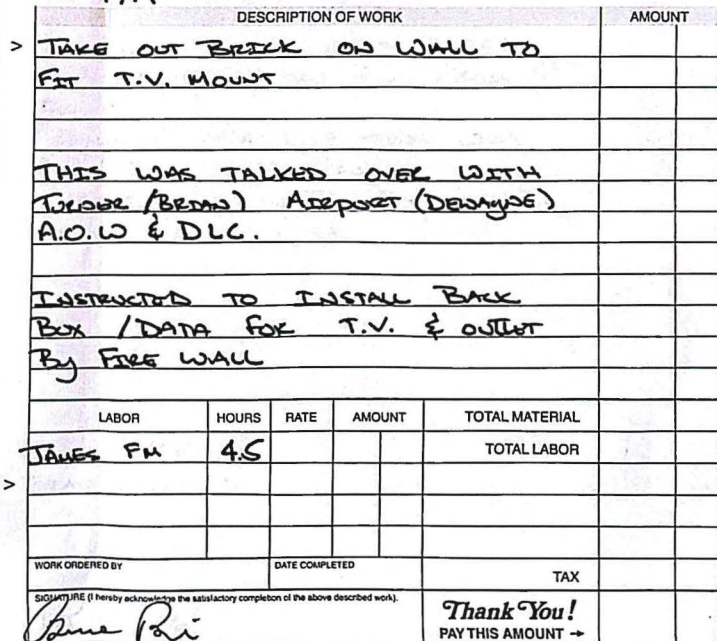 DESCRIPTION OF WORK AMOUNT
> TAKE OUT BRICK ON WALL TO
FIT T.V. MOUNT
THIS WAS TALKED OVER WITH
TURNER (BRIAN) AIRPORT (DEWAYNE)
A.O.W & DLC.
INSTRUCTED TO INSTALL BACK
BOX / DATA FOR T.V. & OUTLET
By FIRE WALL
LABOR HOURS RATE AMOUNT TOTAL MATERIAL
JAMES FM 4.5 TOTAL LABOR
>
WORK ORDERED BY DATE COMPLETED TAX
SIGNATURE (I hereby acknowledge the satisfactory completion of the above described work).
Thank You!
PAY THIS AMOUNT →